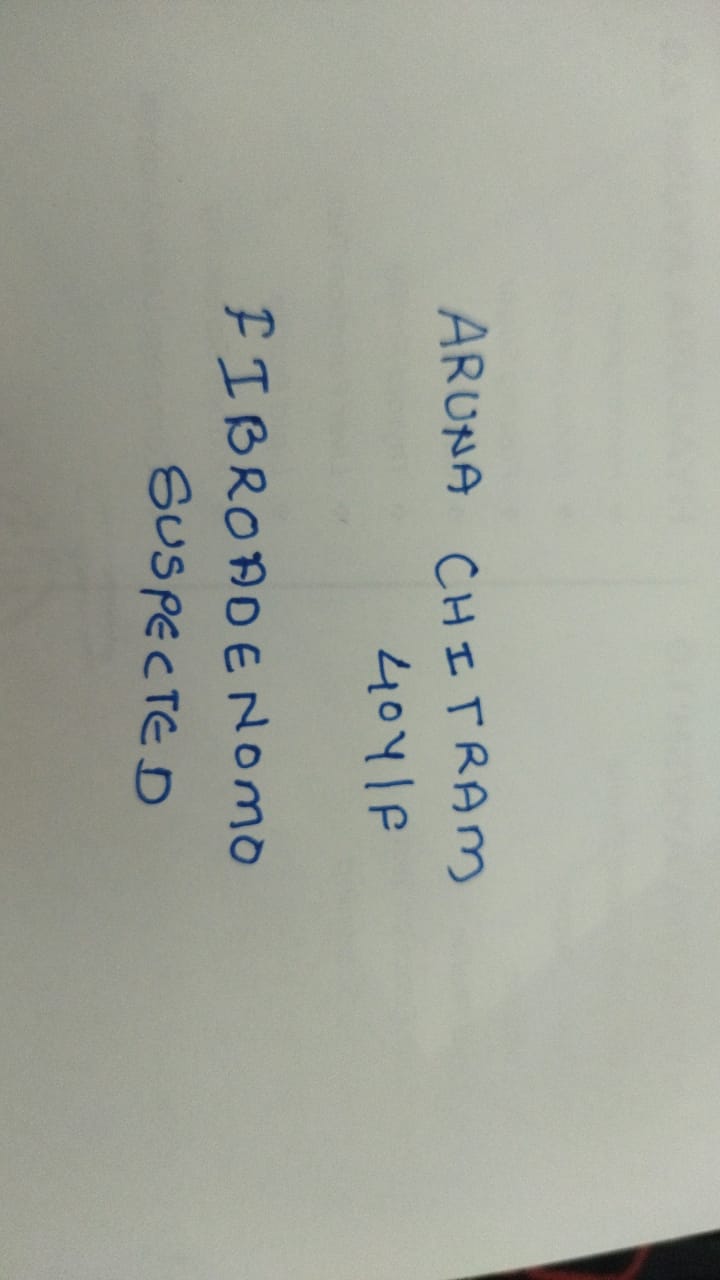 ARUNA CHITRAM
40Y/F
FIBROADENOMO
SUSPECTED